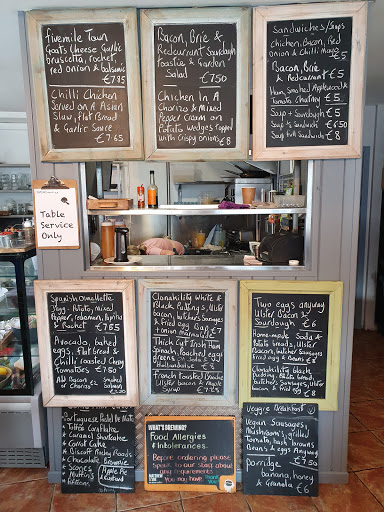 Fivemile Town
Goats Cheese Garlic
bruscetta, rocket,
red onion & balsamic
£7.95
Chilli Chicken
Served on A Asian
Slaw, flat Bread
& Garlic Sauce
£7.65
Bacon, Brie &
Redcurrant Sourdough
toastie & Garden
Salad £7.50
Chicken In A
Chorizo & Mixed
Pepper Cream on
Potato wedges topped
with Crispy onions £8
Sandwiches/Soups
Chicken, Bacon, Red
onion & Chilli Mayo
£5
Bacon, Brie
& Redcurrant £5
Ham, Smoked Applewood &
tomato Chutney £5
Soup + Sourdough £5
Soup ½ Sandwich £6.50
Soup full Sandwich £8
Table
Service
Only
Spanish Omellette
3egg, Potato, mixed
Pepper, redonion, Paprika
& Rocket £7.65
Avocado, baked
eggs, flat bread &
Chilli roasted Cherry
Tomatoes £7.50
Add Bacon £2 or Smoked
Clonakilty white &
Black Puddings, Ulster
bacon, butchers Sausages
& fried egg £7
Thick Cut Irish Ham
Spinach, Poached eggs
Hollandaise £8
French Toasted Brioche
Ulster bacon & Maple
Syrup £7.25
Two eggs anyway
Ulster Bacon &
Sourdough £6
Home-made Soda &
Potato breads, Ulster
Bacon, butchers Sausages
fried egg & Beans £8
Clonakilty black
Pudding
butcher's Sausages, Ulster
bacon & fried egg £8
Portuguese Pastel De Nata
Toffee Cornflake
Caramel Shortcake
Carrot Cake
Biscoff Rocky Roads
Chocolate Brownie
Scones
Muffins
Apple Pie
& Custard
WHAT'S BREWING?
Food Allergies
& Intolerances.
Before ordering please
Speak to our staff about
any requirements
You may have.
Veggie Breakfast
Vegan Sausages,
Mushrooms, grilled
Tomato, hash browns
Beans & eggs Anyway
£7.50
Porridge
banana, honey
& Granola £6